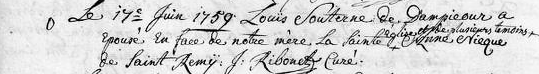 Le 17e Juin 1759. Louis Souterne de Dampicour a
Epousé En face de notre mère La Sainte église et de plusieurs temoins +
Anne Nicque
de Saint Remÿ: J: Ribonet Curé.